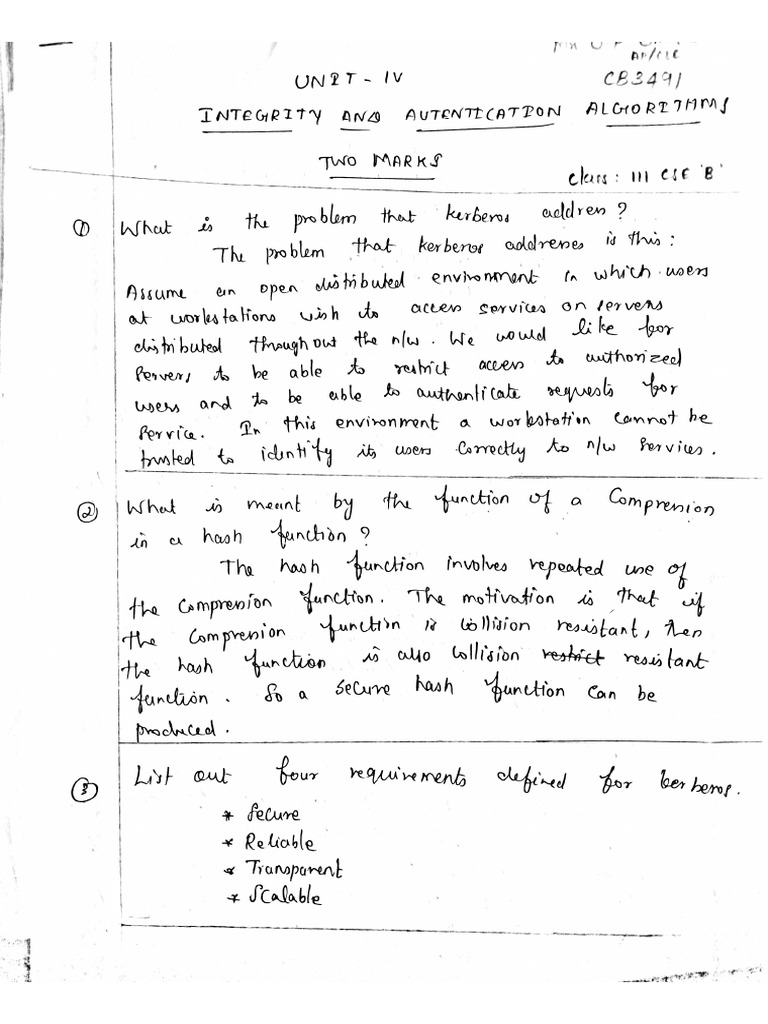 AP/CSE
UNIT - IV
CB3491
INTEGRITY AND AUTENTICATION ALGORITHMS
TWO MARKS
Class: III CSE 'B'
① What is the problem that kerberos address?
The problem that kerberos addresses is this:
Assume an open distributed environment in which users
at workstations wish to access services on servers
distributed throughout the n/w. We would like for
servers to be able to restrict access to authorized
users and to be able to authenticate requests for
service. In this environment a workstation cannot be
trusted to identify its users correctly to n/w services.
② What is meant by the function of a compression
in a hash function?
The hash function involves repeated use of
the compression function. The motivation is that if
the compression function is collision resistant, then
the hash function is also collision restrict resistant
function. So a secure hash function can be
produced.
③ List out four requirements defined for kerberos.
* Secure
* Reliable
* Transparent
* Scalable